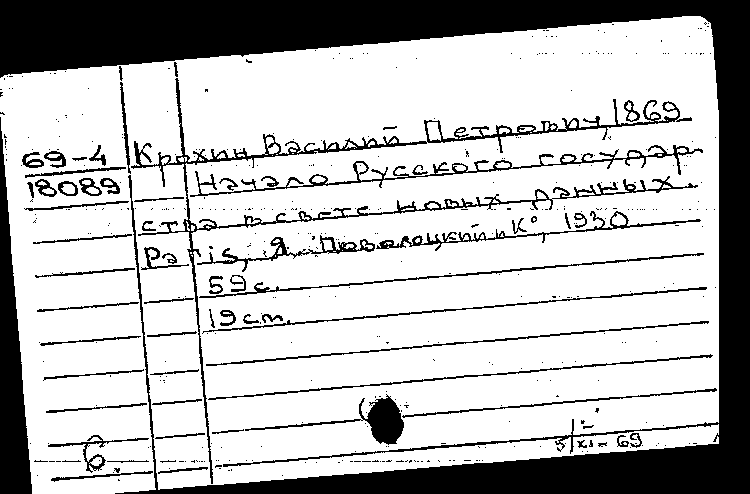 69-4 Крохин, Василий Петрович, 1869
18089 Начало Русского государ-
ства в свете новых данных.
Paris, Я. Поволоцкий и К°, 1930
59 с.
19 cm.
6.
5/XI-69